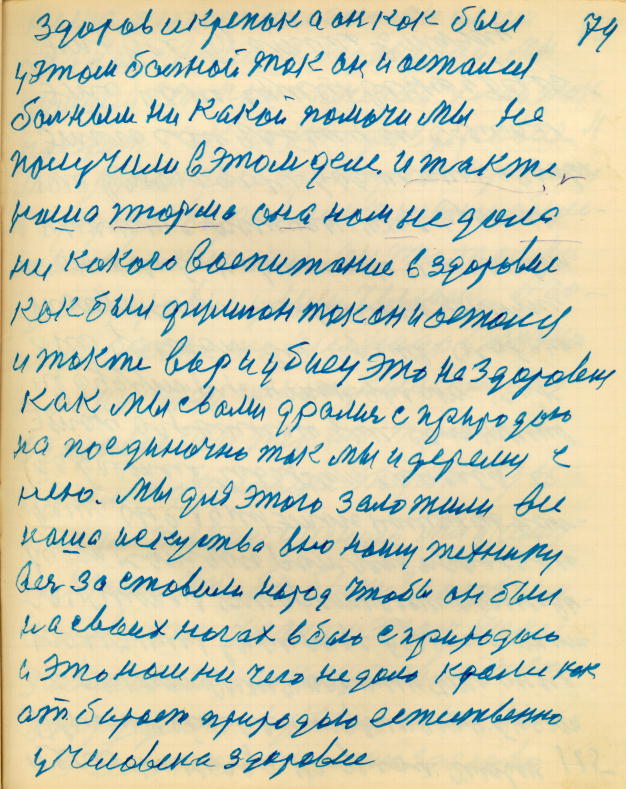 здоров и крепок а он как был 74
у этом больной так он и остался
больным ни какой помочи мы не
получили в этом деле. и также
наша тюрма она нам не дала
ни какого воспитание в здоровие
как был фулиган так он и остался
и также вор и убиец это не здоровец
как мы с вами дрались с природою
на поединачно так мы и деремся с
нею. мы для этого заложили все
наша искуства всю нашу технику
всех заставили народ чтобы он был
на своих ногах в бою с природою
и это нам ни чего не дало кроме как
отбирает природою естественно
у человека здоровие